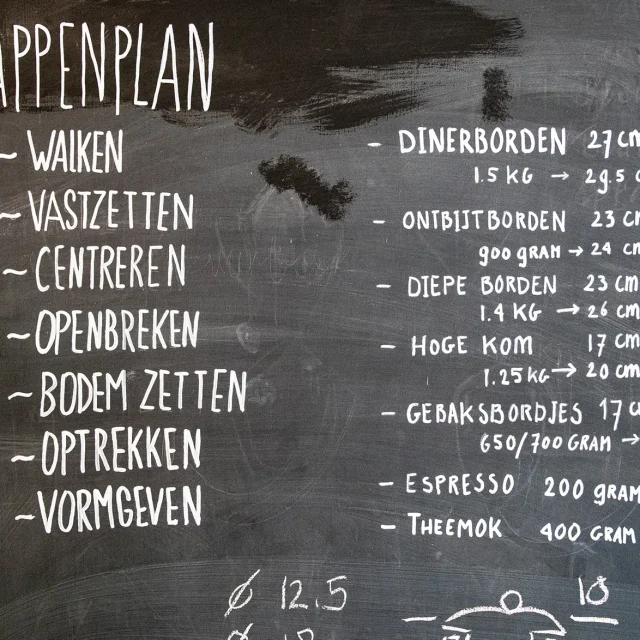 APPENPLAN
~ WALKEN
~ VASTZETTEN
~ CENTREREN
~ OPENBREKEN
~ BODEM ZETTEN
~ OPTREKKEN
~ VORMGEVEN
- DINERBORDEN 27 cm
1.5 KG → 29.5 c
- ONTBIJTBORDEN 23 cm
900 GRAM → 24 cm
- DIEPE BORDEN 23 cm
1.4 KG → 26 cm
- HOGE KOM 17 cm
1.25 KG → 20 cm
- GEBAKSBORDJES 17 c
650/700 GRAM →
- ESPRESSO 200 GRAM
- THEEMOK 400 GRAM
Ø 12.5
10